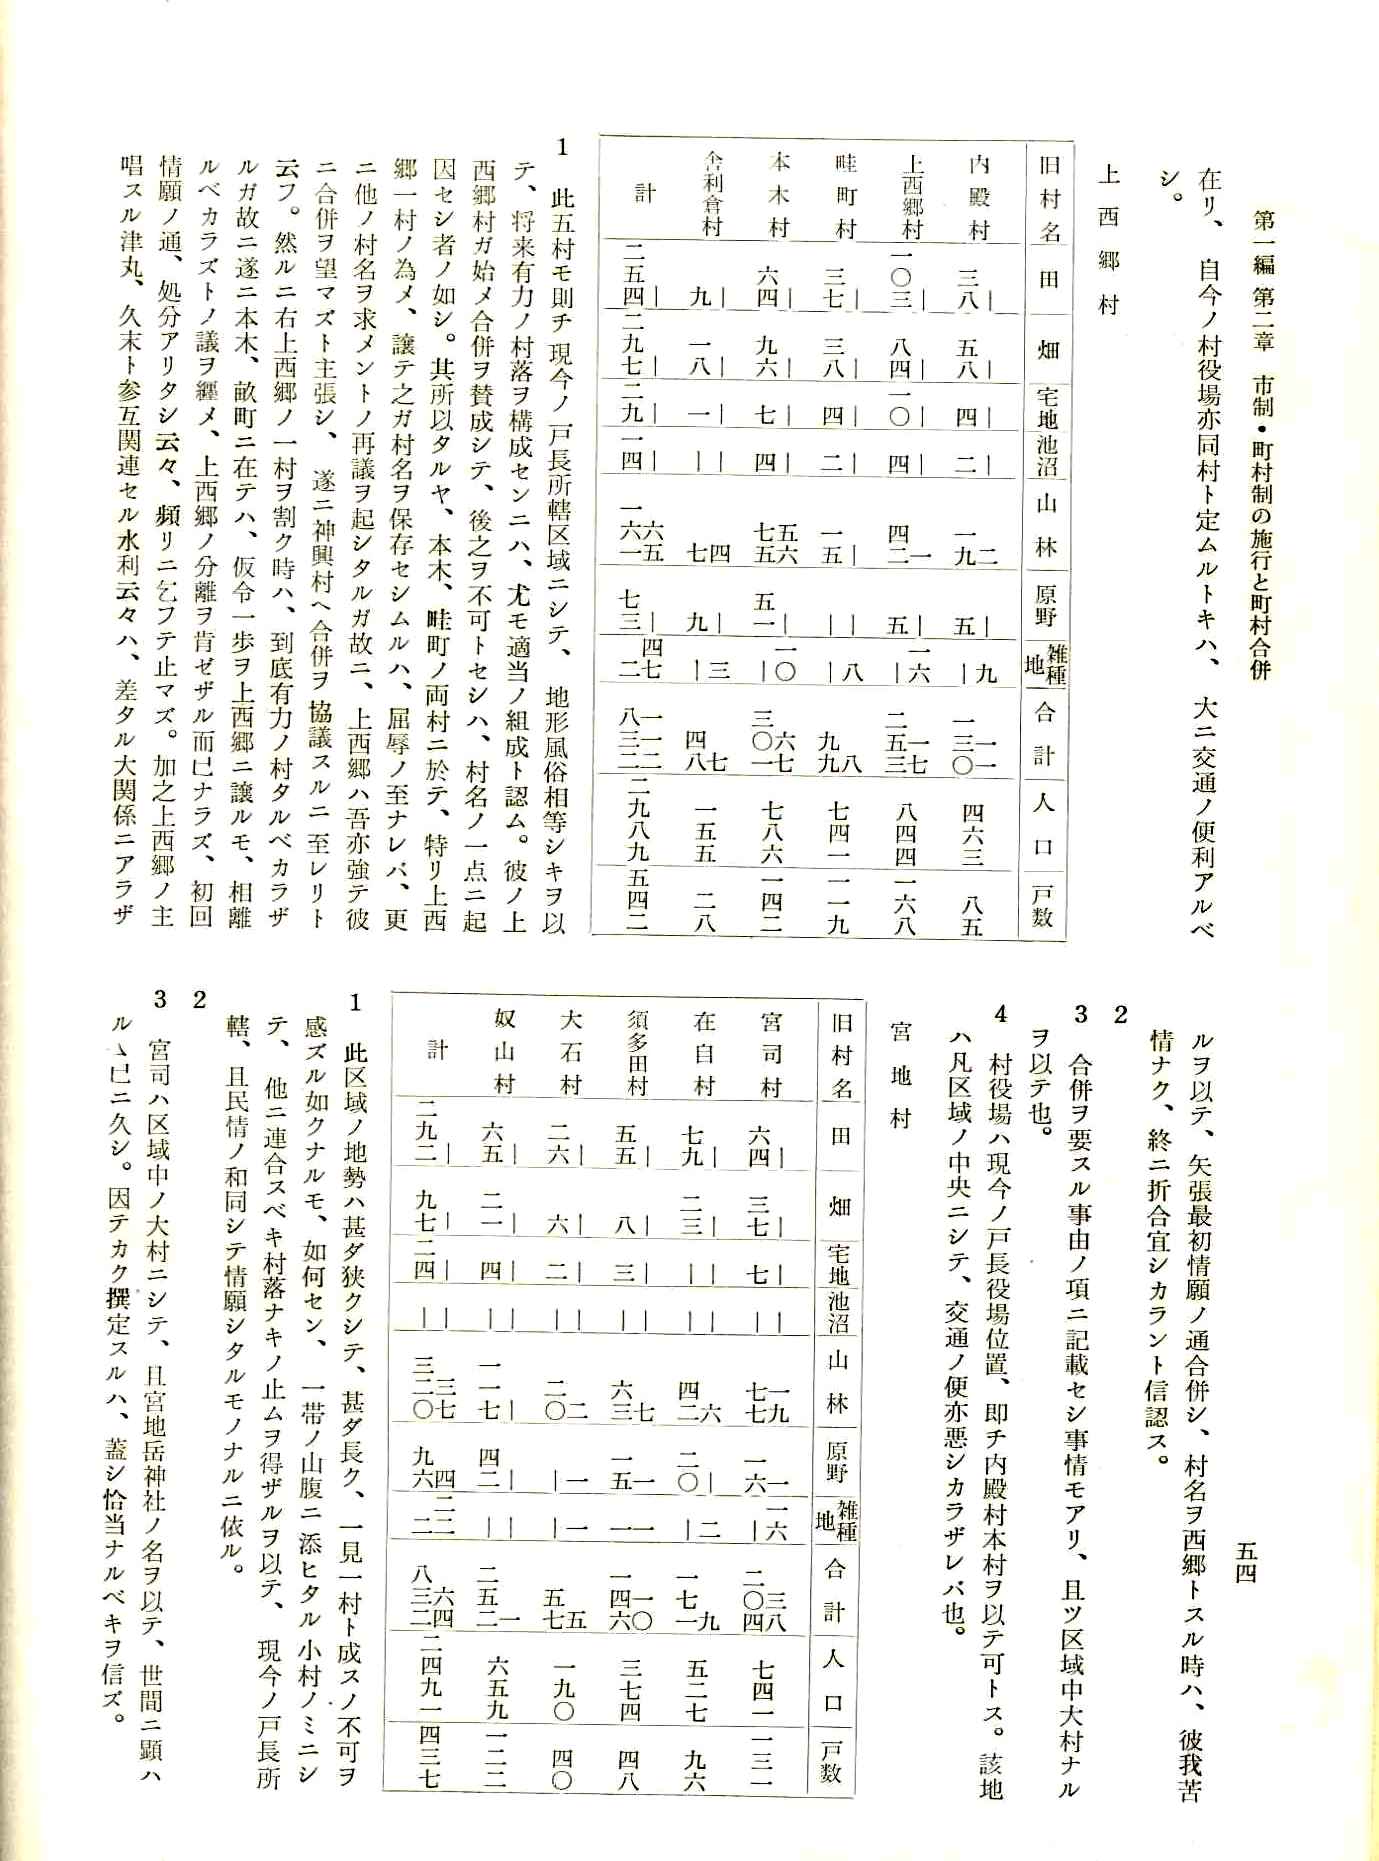 第一編 第二章　市制・町村制の施行と町村合併
在リ、自今ノ村役場亦同村ト定ムルトキハ、大ニ交通ノ便利アルベ
シ。
上西郷村
旧村名 田 畑 宅地 池沼 山林 原野 雑種地 合計 人口 戸数
内殿村 ｜ 三八 ｜ 五八 ｜ 四 ｜ 二 二 一九 ｜ 五 九 ｜ 一一 一三〇 四六三 八五
上西郷村 ｜ 一〇三 ｜ 八四 ｜ 一〇 ｜ 四 一 四二 ｜ 五 一六 ｜ 一七 二五三 八四四 一六八
畦町村 ｜ 三七 ｜ 三八 ｜ 四 ｜ 二 ｜ 一五 ｜ ｜ 八 ｜ 八 九九 七四一 一一九
本木村 ｜ 六四 ｜ 九六 ｜ 七 ｜ 四 五六 七五 ｜ 五一 一〇 ｜ 六七 三〇一 七八六 一四二
舎利倉村 ｜ 九 ｜ 一八 ｜ 一 ｜ ｜ 四 七 ｜ 九 三 ｜ 七 四八 一五五 二八
計 ｜ 二五四 ｜ 二九七 ｜ 二九 ｜ 一四 六五 一六一 ｜ 七三 四七 二 一一二 八三二 二九八九 五四二
1　此五村モ則チ現今ノ戸長所轄区域ニシテ、地形風俗相等シキヲ以
テ、将来有力ノ村落ヲ構成センニハ、尤モ適当ノ組成ト認ム。彼ノ上
西郷村ガ始メ合併ヲ賛成シテ、後之ヲ不可トセシハ、村名ノ一点ニ起
因セシ者ノ如シ。其所以タルヤ、本木、畦町ノ両村ニ於テ、特リ上西
郷一村ノ為メ、譲テ之ガ村名ヲ保存セシムルハ、屈辱ノ至ナレバ、更
ニ他ノ村名ヲ求メントノ再議ヲ起シタルガ故ニ、上西郷ハ吾亦強テ彼
ニ合併ヲ望マズト主張シ、遂ニ神興村ヘ合併ヲ協議スルニ至レリト
云フ。然ルニ右上西郷ノ一村ヲ割ク時ハ、到底有力ノ村タルベカラザ
ルガ故ニ遂ニ本木、畝町ニ在テハ、仮令一歩ヲ上西郷ニ譲ルモ、相離
ルベカラズトノ議ヲ纒メ、上西郷ノ分離ヲ肯ゼザル而已ナラズ、初回
情願ノ通、処分アリタシ云々、頻リニ乞フテ止マズ。加之上西郷ノ主
唱スル津丸、久末ト参互関連セル水利云々ハ、差タル大関係ニアラザ
ルヲ以テ、矢張最初情願ノ通合併シ、村名ヲ西郷トスル時ハ、彼我苦
情ナク、終ニ折合宜シカラント信認ス。
2
3　合併ヲ要スル事由ノ項ニ記載セシ事情モアリ、且ツ区域中大村ナル
ヲ以テ也。
4　村役場ハ現今ノ戸長役場位置、即チ内殿村本村ヲ以テ可トス。該地
ハ凡区域ノ中央ニシテ、交通ノ便亦悪シカラザレバ也。
宮地村
旧村名 田 畑 宅地 池沼 山林 原野 雑種地 合計 人口 戸数
宮司村 ｜ 六四 ｜ 三七 ｜ 七 ｜ ｜ 一九 七七 一 一六 一六 ｜ 三八 二〇四 七四一 一三一
在自村 ｜ 七九 ｜ 二三 ｜ ｜ ｜ ｜ 六 四二 ｜ 二〇 二 ｜ 九 一七一 五二七 九六
須多田村 ｜ 五五 ｜ 八 ｜ 三 ｜ ｜ 七 六三 一 一五 一 一 一〇 一四六 三七四 四八
大石村 ｜ 二六 ｜ 六 ｜ 二 ｜ ｜ 二 二〇 一 ｜ 一 ｜ 五 五七 一九〇 四〇
奴山村 ｜ 六五 ｜ 二一 ｜ 四 ｜ ｜ ｜ 一一七 ｜ 四二 ｜ ｜ 一 二五二 六五九 一二二
計 ｜ 二九二 ｜ 九七 ｜ 二四 ｜ ｜ 三七 三二〇 四 九六 二二 二 六四 八三二 二四九一 四三七
1　此区域ノ地勢ハ甚ダ狭クシテ、甚ダ長ク、一見一村ト成スノ不可ヲ
感ズル如クナルモ、如何セン、一帯ノ山腹ニ添ヒタル小村ノミニシ
テ、他ニ連合スベキ村落ナキノ止ムヲ得ザルヲ以テ、現今ノ戸長所
轄、且民情ノ和同シテ情願シタルモノナルニ依ル。
2
3　宮司ハ区域中ノ大村ニシテ、且宮地岳神社ノ名ヲ以テ、世間ニ顕ハ
ルヽ已ニ久シ。因テカク撰定スルハ、蓋シ恰当ナルベキヲ信ズ。
五四